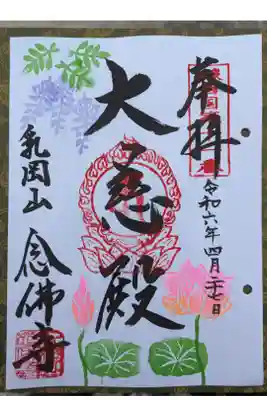 奉拝
令和六年四月二十七日
大悲殿
乳岡山 念佛寺